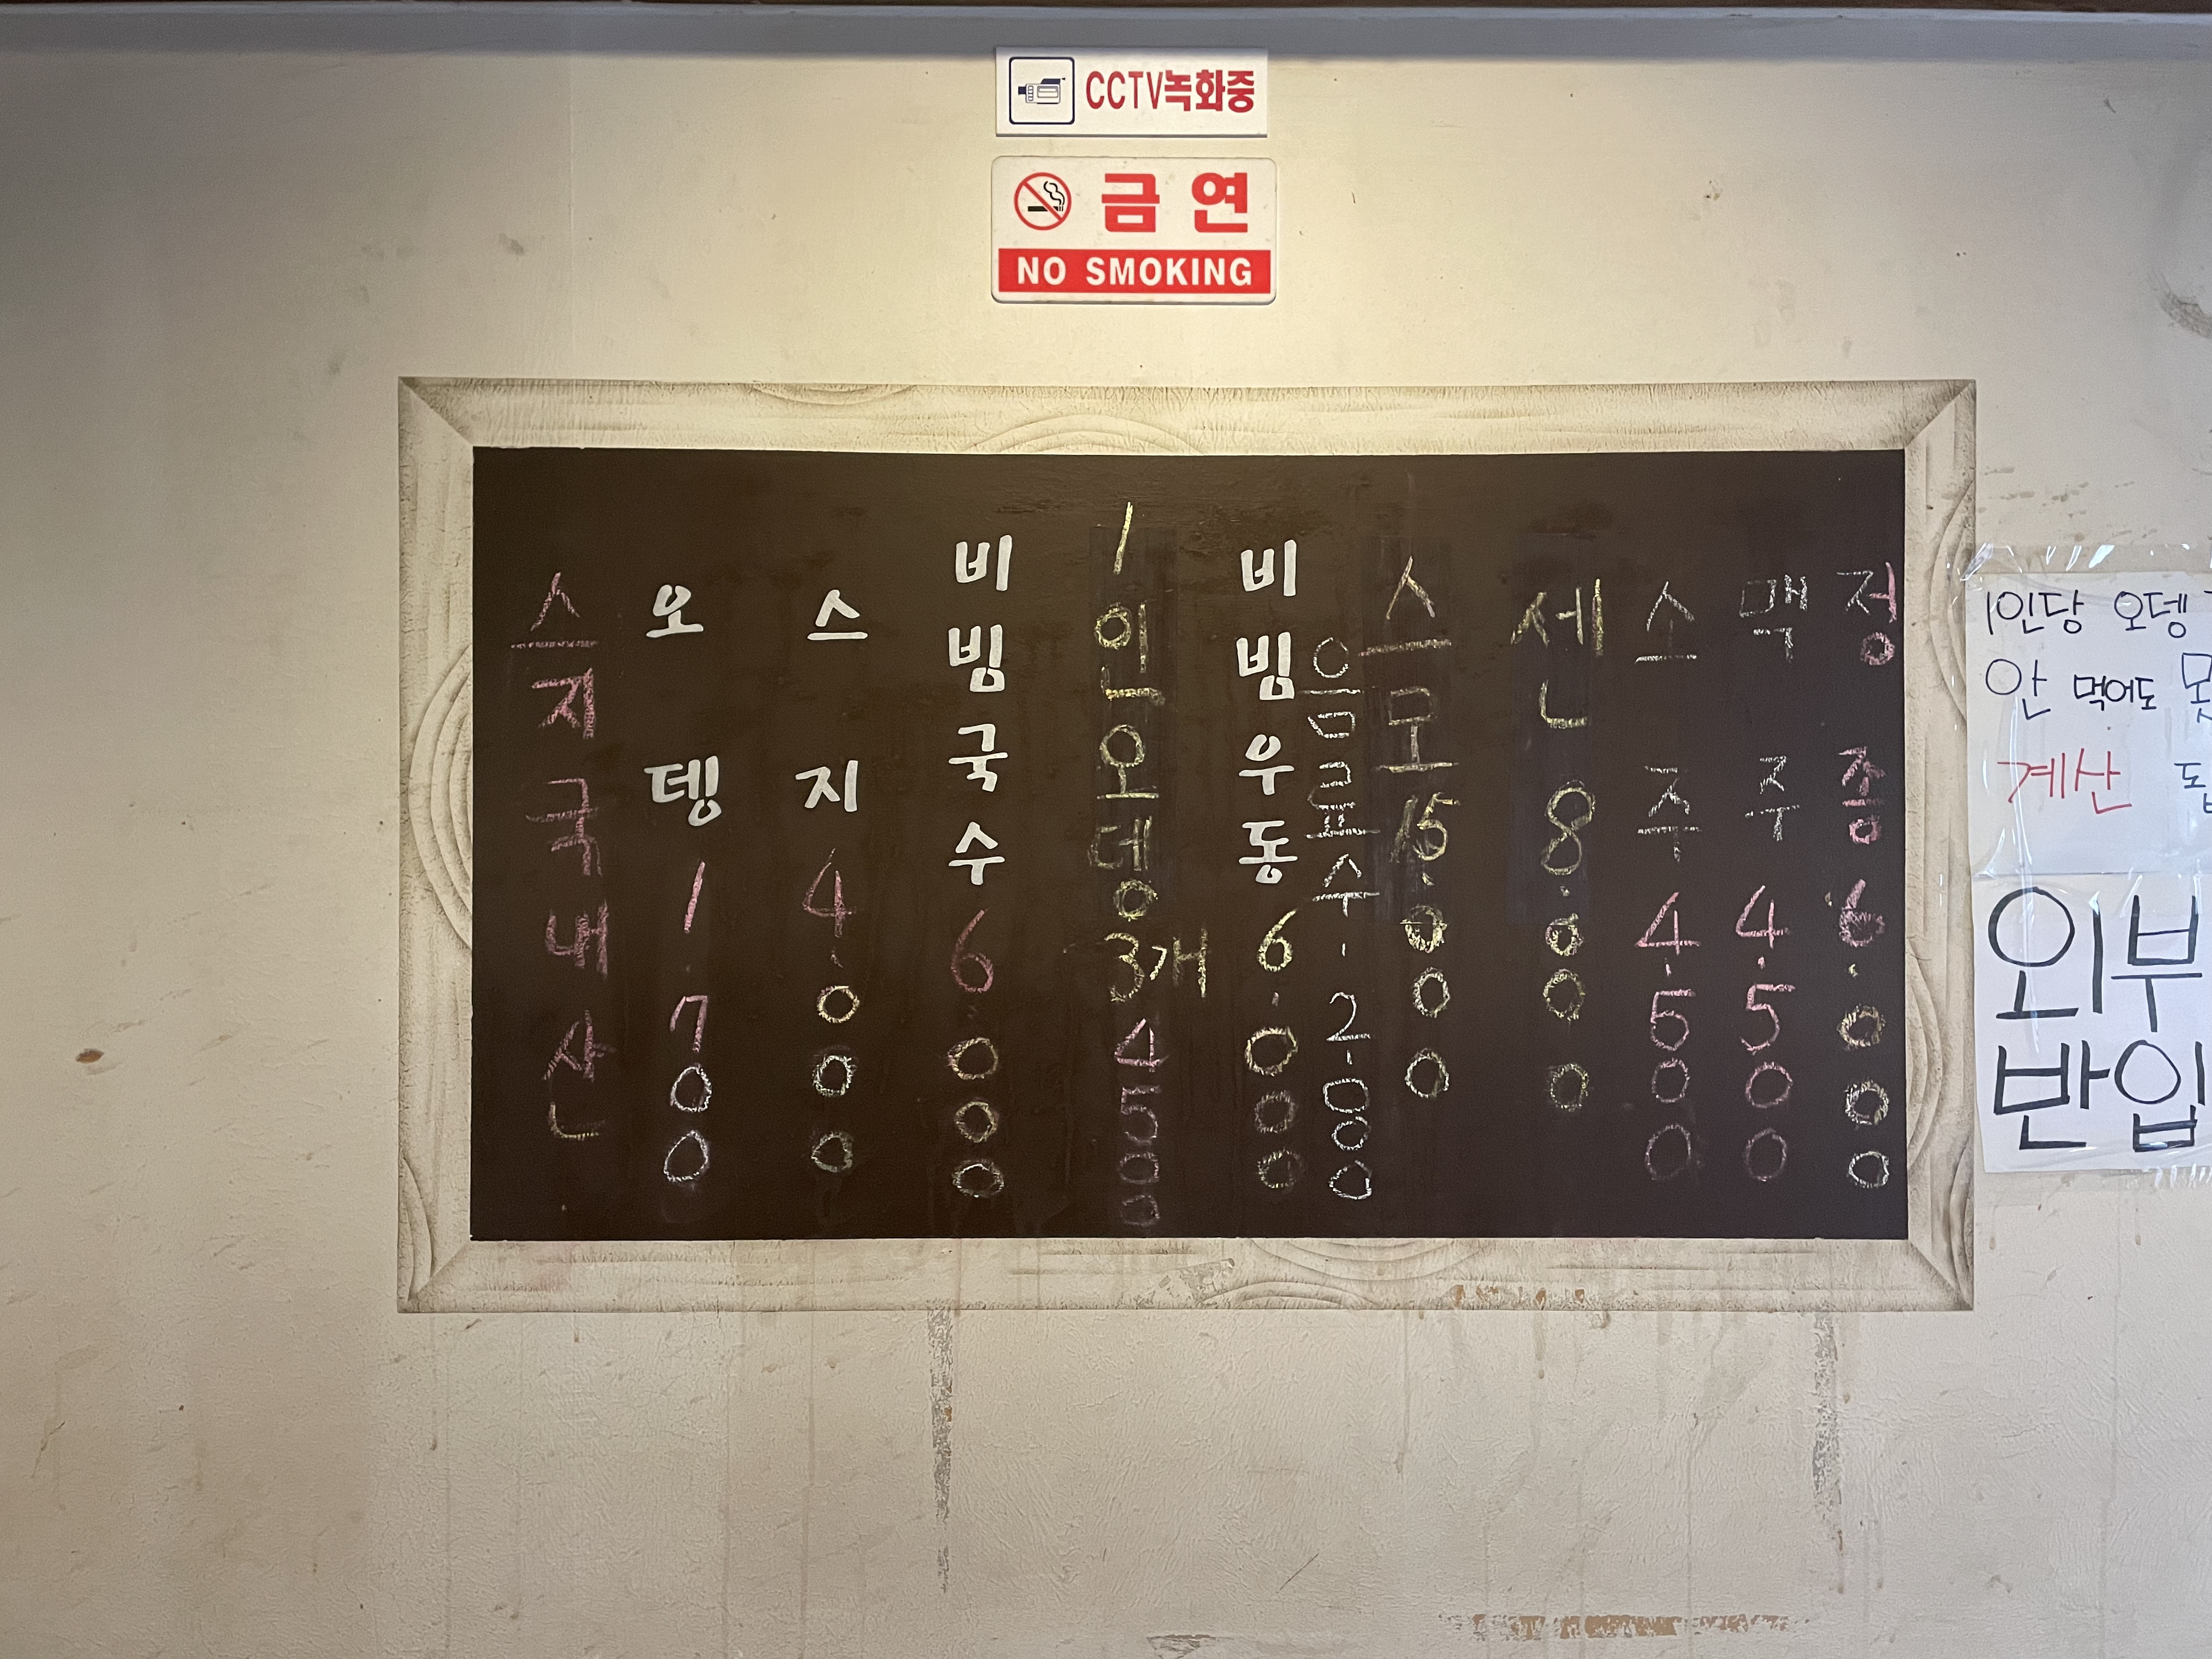 CCTV녹화중
금연
NO SMOKING
스지국내산
오뎅 1.700
스지 4.000
비빔국수 6.000
1인오뎅3개 4500
비빔우동 6.000
음료수.2.000
스모 15.000
센 8.000
소주 4.500
맥주 4.500
정종 6.000
1인당 오뎅
안 먹어도
계산
외부
반입